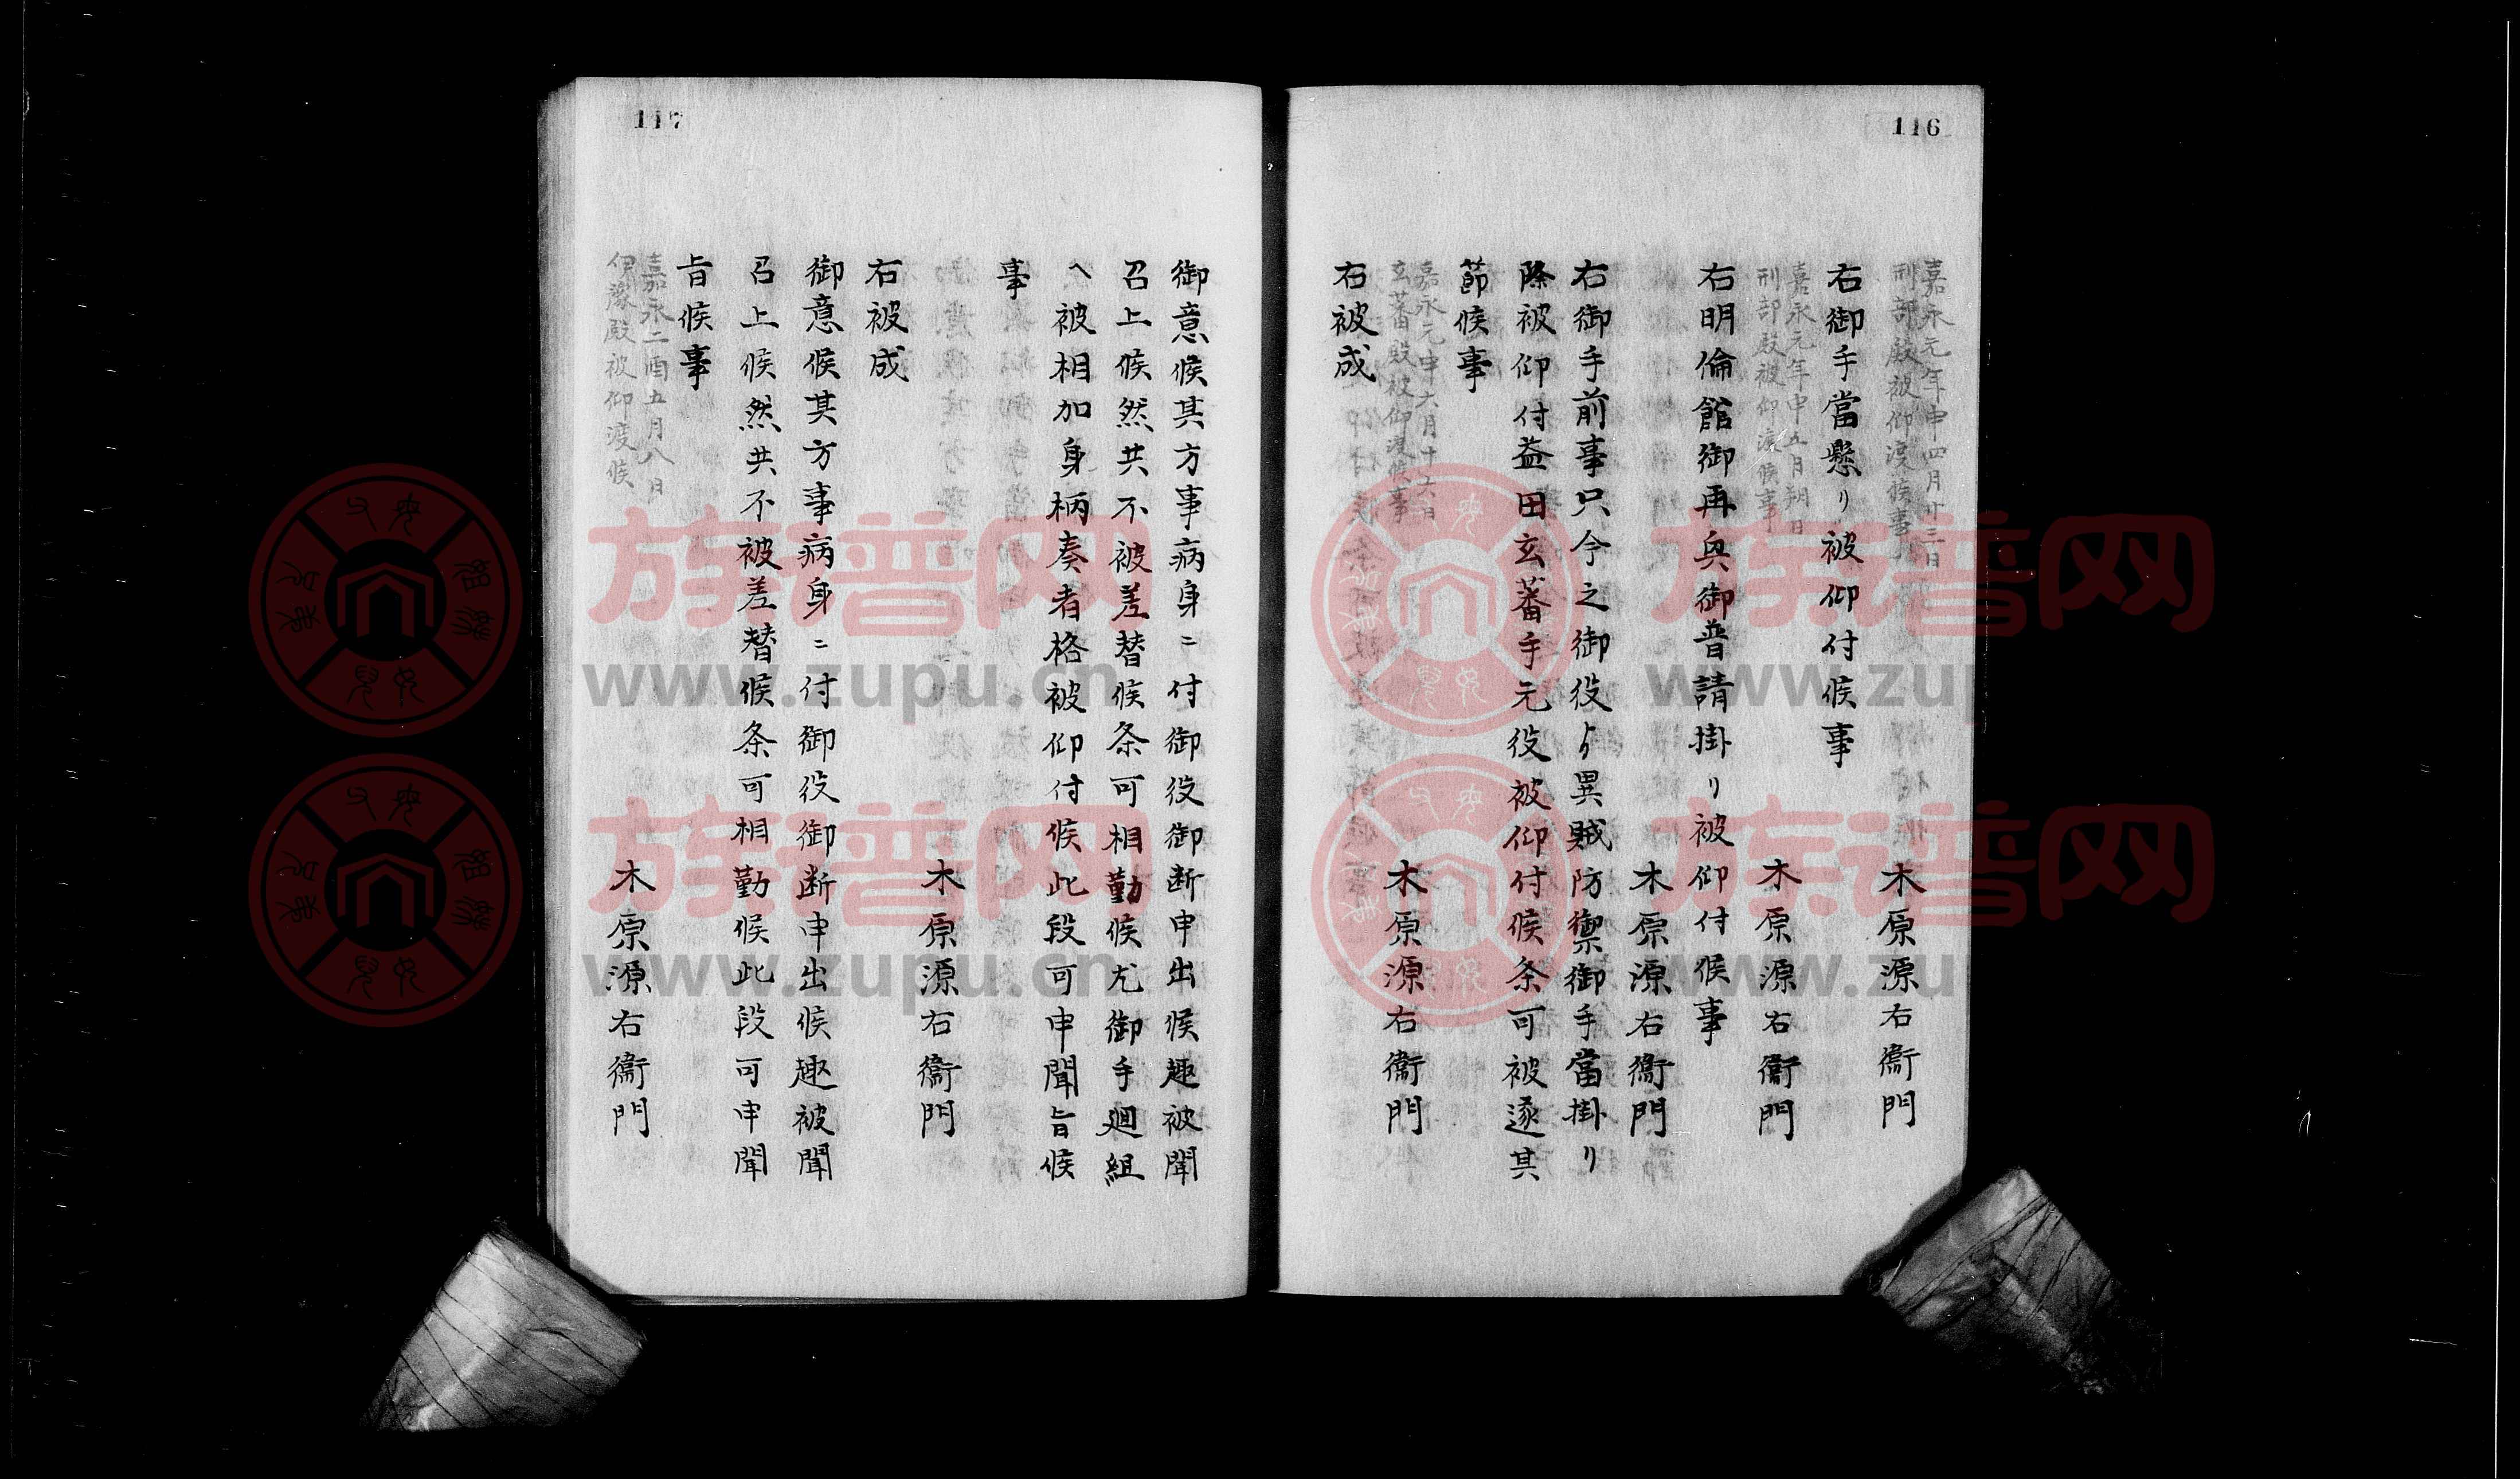 116
嘉永元年申四月廿三日
刑部殿被仰渡候事
木原源右衞門
右御手當懸リ被仰付候事
嘉永元年申五月朔日
刑部殿被仰渡候事
木原源右衞門
右明倫館御再興御普請掛リ被仰付候事
木原源右衞門
右御手前事只今之御役ゟ異賊防禦御手當掛リ
除被仰付益田玄蕃手元役被仰付候条可被遂其
節候事
嘉永元申六月十六日
玄蕃殿被仰渡候事
木原源右衞門
右被成
117
御意候其方事病身ニ付御役御断申出候趣被聞
召上候然共不被差替候条可相勤候尤御手廻組
へ被相加身柄奏者格被仰付候此段可申聞旨候
事
木原源右衞門
右被成
御意候其方事病身ニ付御役御断申出候趣被聞
召上候然共不被差替候条可相勤候此段可申聞
旨候事
嘉永二酉五月八日
伊豫殿被仰渡候
木原源右衞門
族谱网
www.zupu.cn
族谱网
www.zupu.cn
族谱网
www.zup
族谱网
www.zup